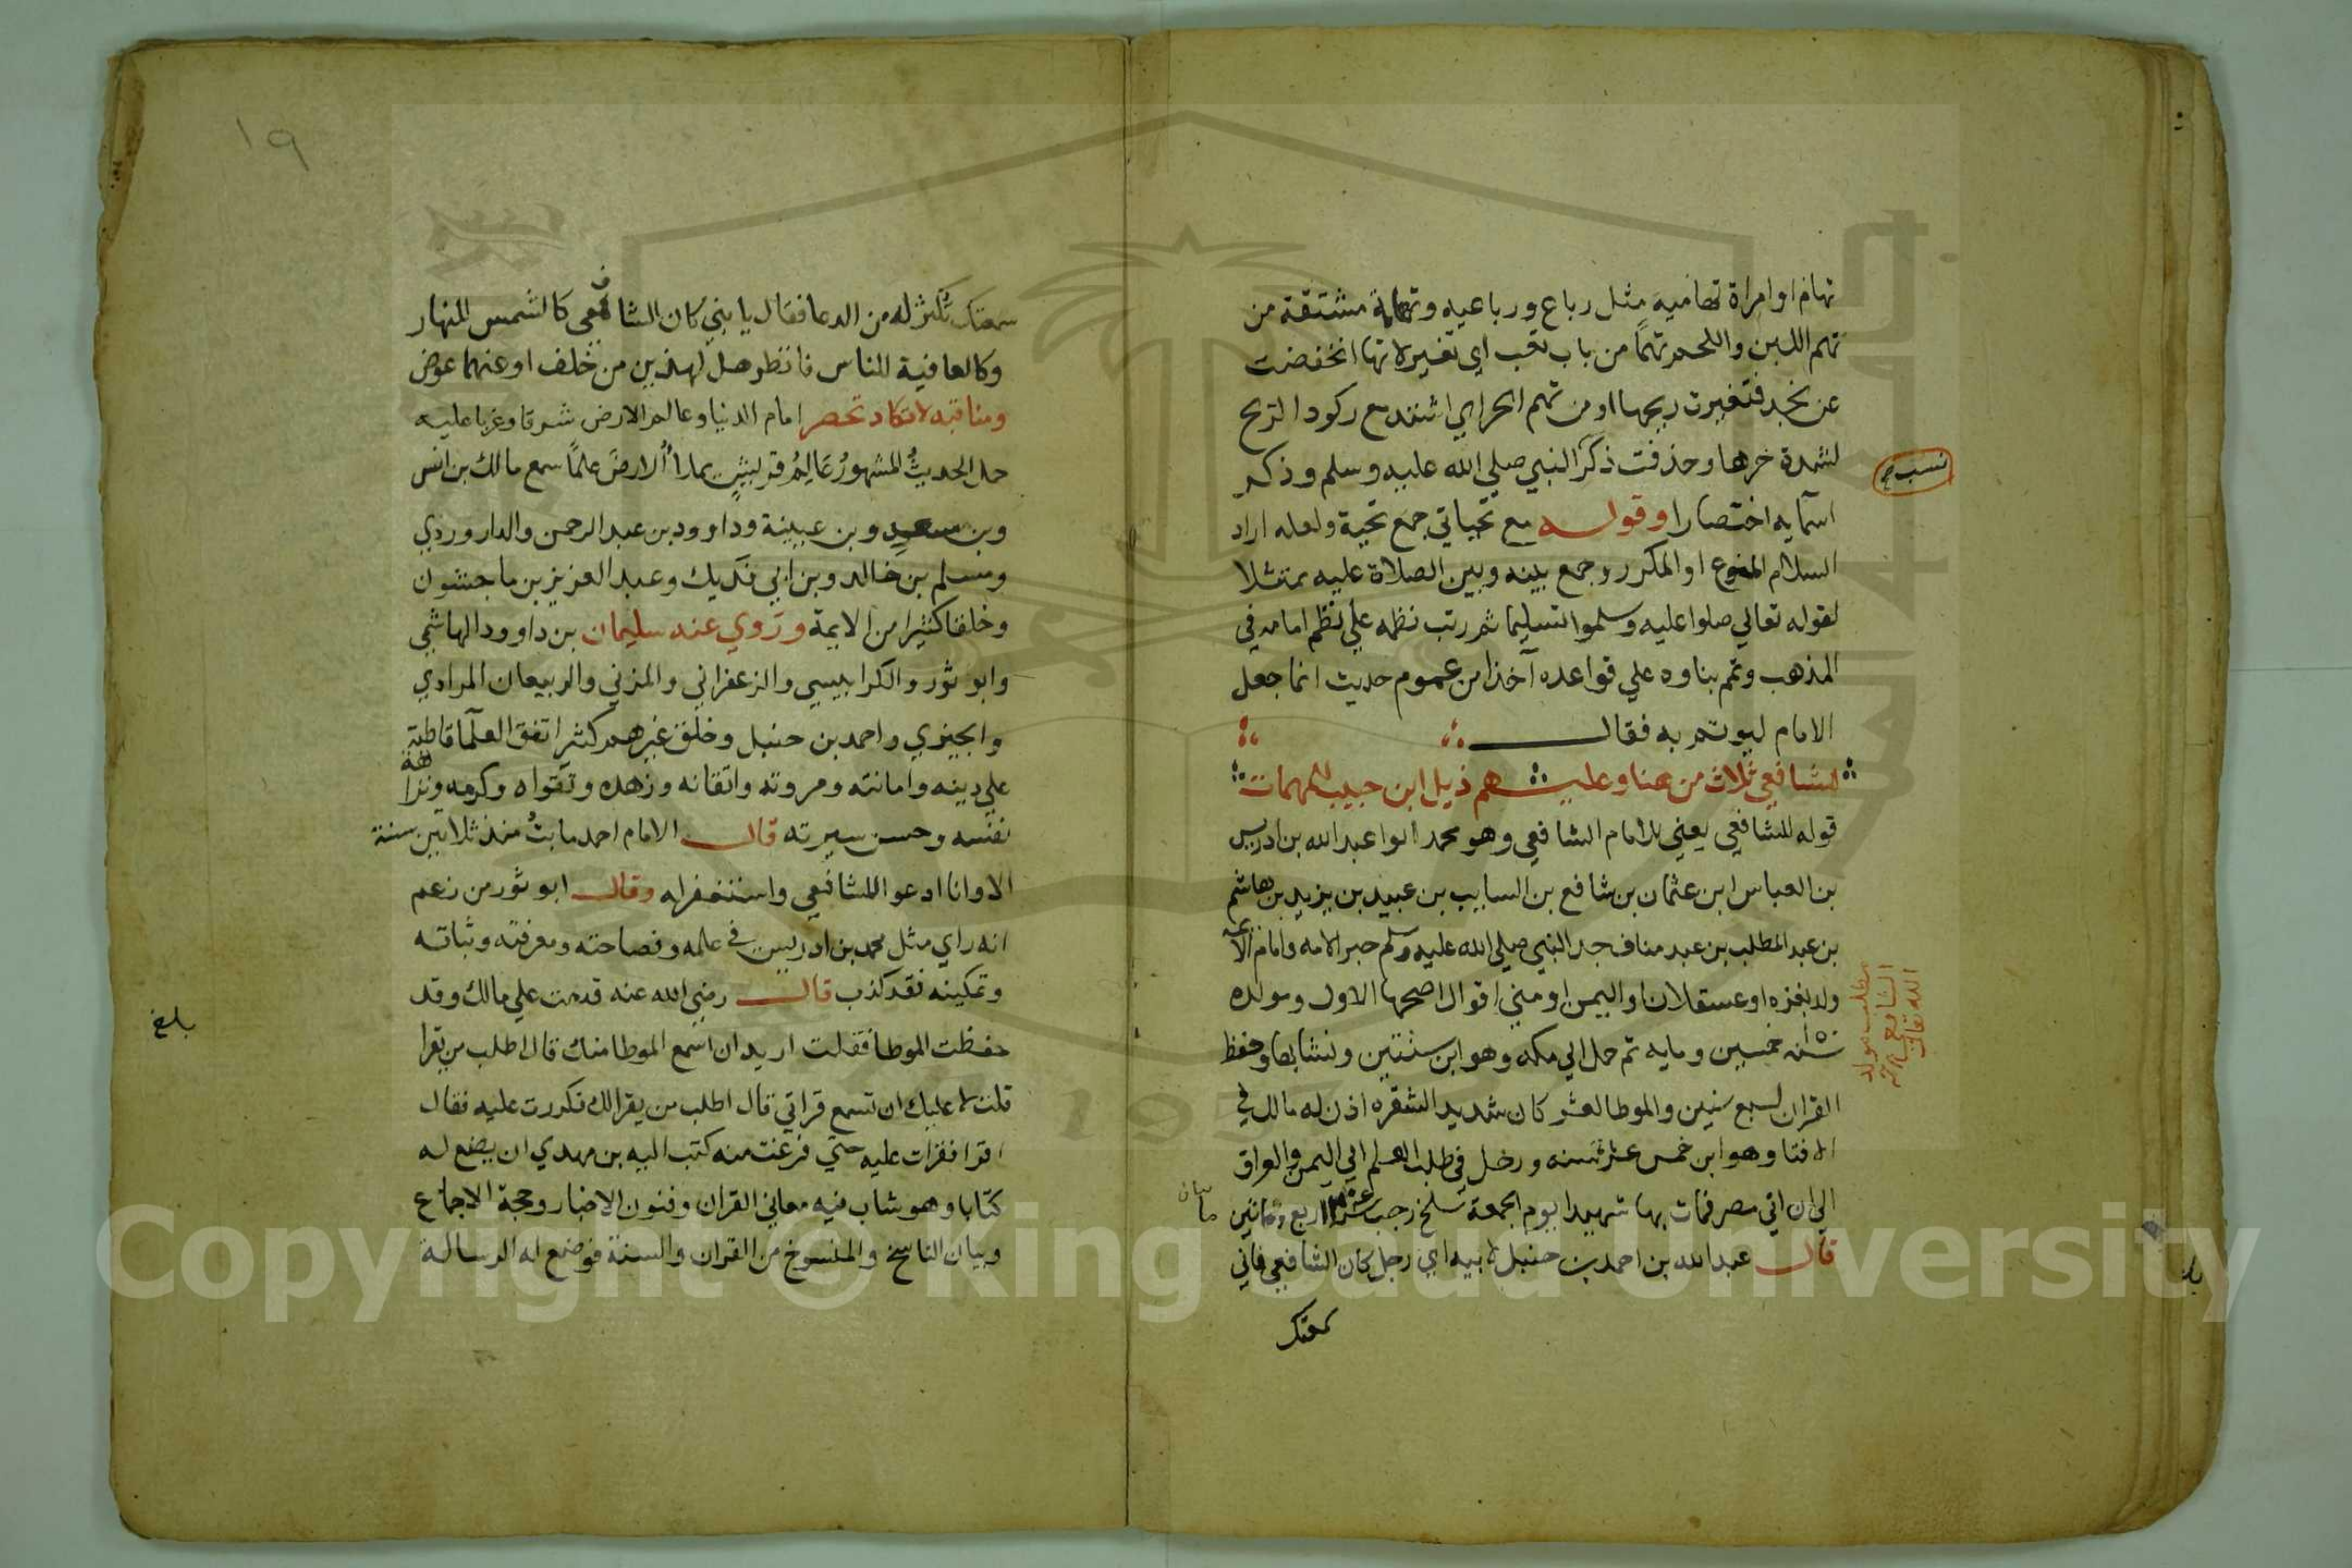 تهام او امراة تهامية مثل رباع ورباعيه وتهامة مشتقة من
تهم اللبن واللحم تهما من باب تعب اي تغير لانها انخفضت
عن نجد فتغيرت ريحها او من تهم الحر اي اشتد مع ركود الريح
لشدة حرها وحذفت ذكر النبي صلي الله عليه وسلم وذكر
اسمايه اختصارا وقوله مع تحياتي جمع تحية ولعله اراد
السلام المنوع او المكرر وجمع بينه وبين الصلاة عليه ممتثلا
لقوله تعالي صلوا عليه وسلموا تسليما ثم رتب نظمه علي نظم امامه في
المذهب وتم بناوه علي قواعده آخذا من عموم حديث انما جعل
الامام ليوتم به فقال
للشافعي ثلاث من هنا وعليـ ـهم ذيل ابن حبيب المهمات
قوله للشافعي يعني للامام الشافعي وهو محمد ابوا عبد الله بن ادريس
بن العباس ابن عثمان بن شافع بن السايب بن عبيد بن يزيد بن هاشم
بن عبد المطلب بن عبد مناف جد النبي صلي الله عليه وسلم حبر الامه وامام
ولد بغزه او عسقلان او اليمن او مني اقوال اصحها الاول ومولده
سنة خمسين ومايه ثم حمل الي مكه وهو ابن سنتين ونشا بها وحفظ
القران لسبع سنين والموطا لعشر كان شديد الشقره اذن له مالك في
الافتا وهو ابن خمس عشر سنه ورحل في طلب العلم الي اليمن والعراق
الي ان اتي مصر فمات بها شهيدا يوم الجمعة سلخ رجب اربع ومائتين
قال عبد الله بن احمد بن حنبل لابيه اي رجل كان الشافعي فاني
سمعتك
مطلب مولد
الشافعي رحمه
الله تعالي
سمعتك تكثر له من الدعا فقال يا بني كان الشافعي كالشمس للنهار
وكالعافية للناس فانظر هل لهذين من خلف او عنهما عوض
ومناقبه لا تكاد تحصر امام الدنيا وعالم الارض شرقا وغربا عليه
حمل الحديث المشهور عالم قريش يملأ الارض علما سمع مالك بن انس
وبن سعيد وبن عيينة وداوود بن عبد الرحمن والداروردي
ومسلم بن خالد وبن ابي فديك وعبد العزيز بن ماجشون
وخلقا كثيرا من الايمة وروي عنه سليمان بن داوود الهاشمي
وابو ثور والكرابيسي والزعفراني والمزني والربيعان المرادي
والجيزي واحمد بن حنبل وخلق غيرهم كثير اتفق العلما قاطبة
علي دينه وامانته ومروته واتقانه وزهده وتقواه وكرمه ونزاهة
نفسه وحسن سيرته قال الامام احمد ما بت منذ ثلاثين سنة
الا وانا ادعوا للشافعي واستغفر له وقال ابو ثور من زعم
انه راي مثل محمد بن ادريس في علمه وفصاحته ومعرفته وثباته
وتمكينه فقد كذب قال رضي الله عنه قدمت علي مالك وقد
حفظت الموطا فقلت اريد ان اسمع الموطا منك قال اطلب من يقرا
قلت لا عليك ان تسمع قراتي قال اطلب من يقرا لك فكررت عليه فقال
اقرا فقرات عليه حتي فرغت منه كتب اليه بن مهدي ان يضع له
كتابا وهو شاب فيه معاني القران وفنون الاخبار وحجة الاجماع
وبيان الناسخ والمنسوخ من القران والسنة فوضع له الرسالة
بلغ
١٩
Copyright © King Saud University